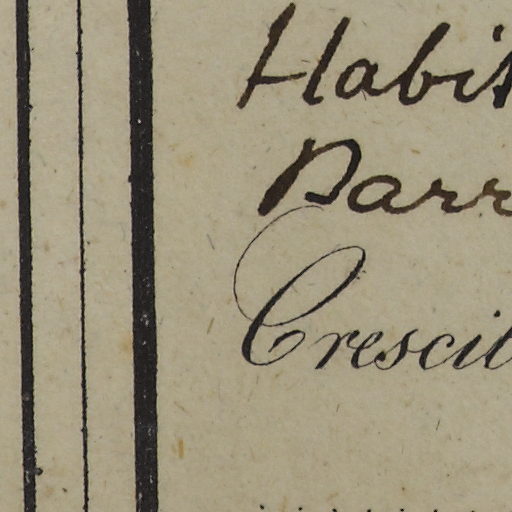 Habit
Barr
Crescit